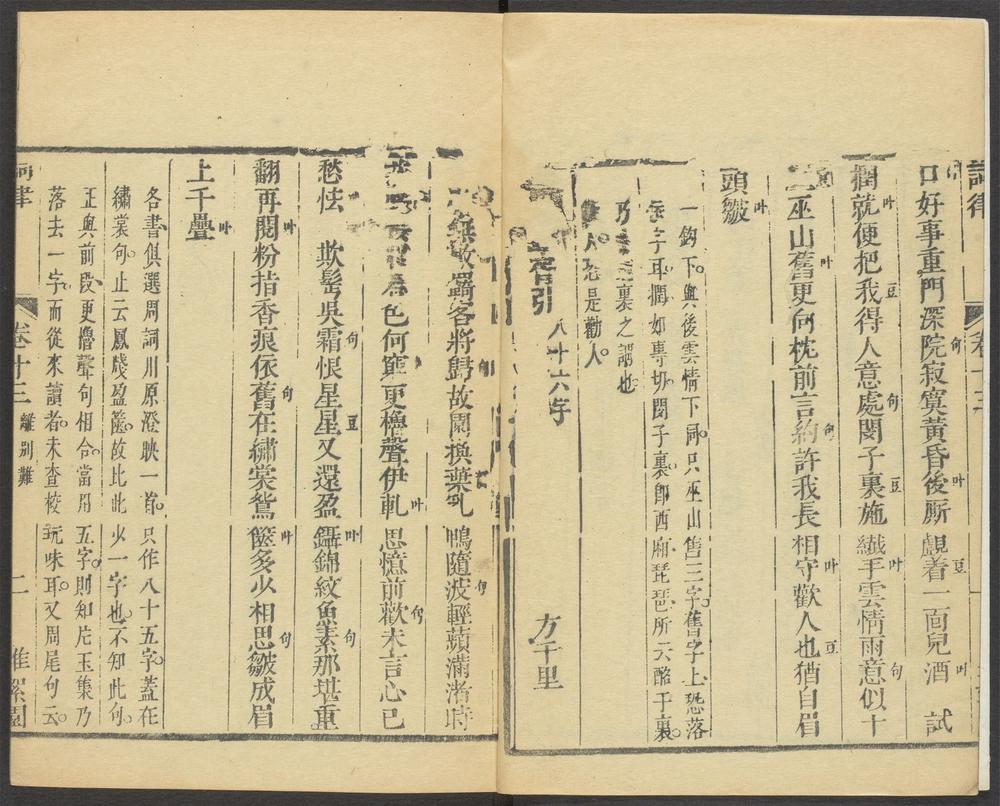 詞律 卷十三
口好事重門深院寂寞黃昏後厮覷着一面兒酒 試
撋就便把我得人意處閔子裏施纖手雲情雨意似十
二巫山舊更向枕前言約許我長相守歡人也猶自眉
頭皺
一鈎下與後雲情下同只巫山售三字舊字上恐落
字耳撋如專切閔子裏卽西廂琵琶所云酩子裏
乃 裏之謂也
人恐是勸人
引 八十六字 方千里
無敬蠲客將歸故園換葉 鴨隨波輕蘋滿渚時
色何窮更櫓聲伊軋 思憶前歡未言心已
愁怯 欺髩吳霜恨星星又還盈鑷錦紋魚素那堪重
翻再閱粉指香痕依舊在繡裳鴛篋多少相思皺成眉
上千疊
各書俱選周詞川原澄映一首只作八十五字蓋在
繡裳句止云鳳牋盈篋故比此少一字也不知此句
正與前段更櫓聲句相合當用五字則知片玉集乃
落去一字而從來讀者未查校玩味耳又周尾句云
詞律 卷十三 離別難 二 堆絮園